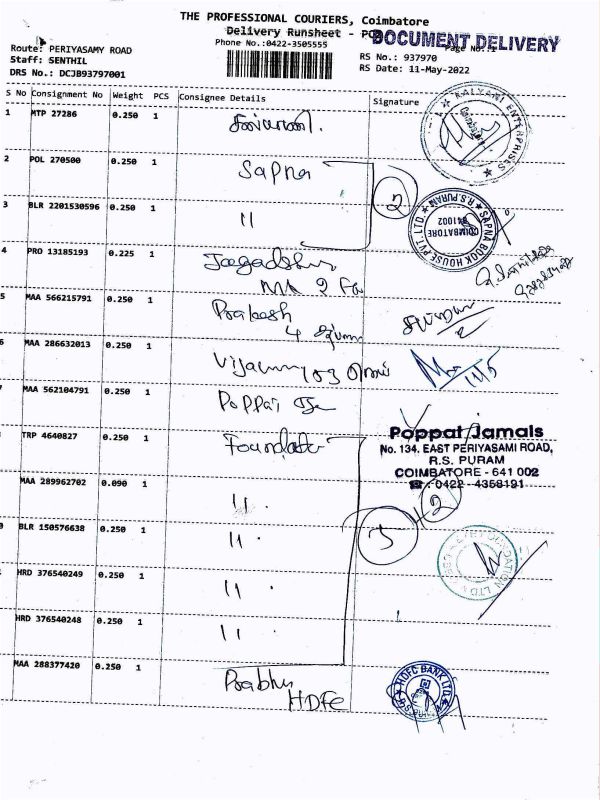 THE PROFESSIONAL COURIERS, Coimbatore
Delivery Runsheet -
DOCUMENT DELIVERY
Phone No.:0422-3505555
Page No.:1
Route: PERIYASAMY ROAD
RS No.: 937970
Staff: SENTHIL
RS Date: 11-May-2022
DRS No.: DCJB93797001
S No Consignment No Weight PCS Consignee Details Signature
1 MTP 27286 0.250 1
KALYANI ENTERPRISES
Coimbatore
2 POL 270500 0.250 1 Sapna
2
3 BLR 2201530596 0.250 1 "
SAPNA BOOK HOUSE PVT. LTD. R.S. PURAM
COIMBATORE
641002
4 PRO 13185193 0.225 1
5 MAA 566215791 0.250 1 Prakash
4
6 MAA 286632013 0.250 1
11/5
MAA 562104791 0.250 1 Poppat
Poppat Jamals
No. 134. EAST PERIYASAMI ROAD,
R.S. PURAM
COIMBATORE - 641 002
☎: 0422 - 4358191
TRP 4640827 0.250 1
MAA 289962702 0.090 1 "
+2
BLR 150576638 0.250 1 "
3
HRD 376540249 0.250 1 "
HRD 376540248 0.250 1 "
MAA 288377420 0.250 1 Prabhu
HDFC
HDFC BANK LTD.